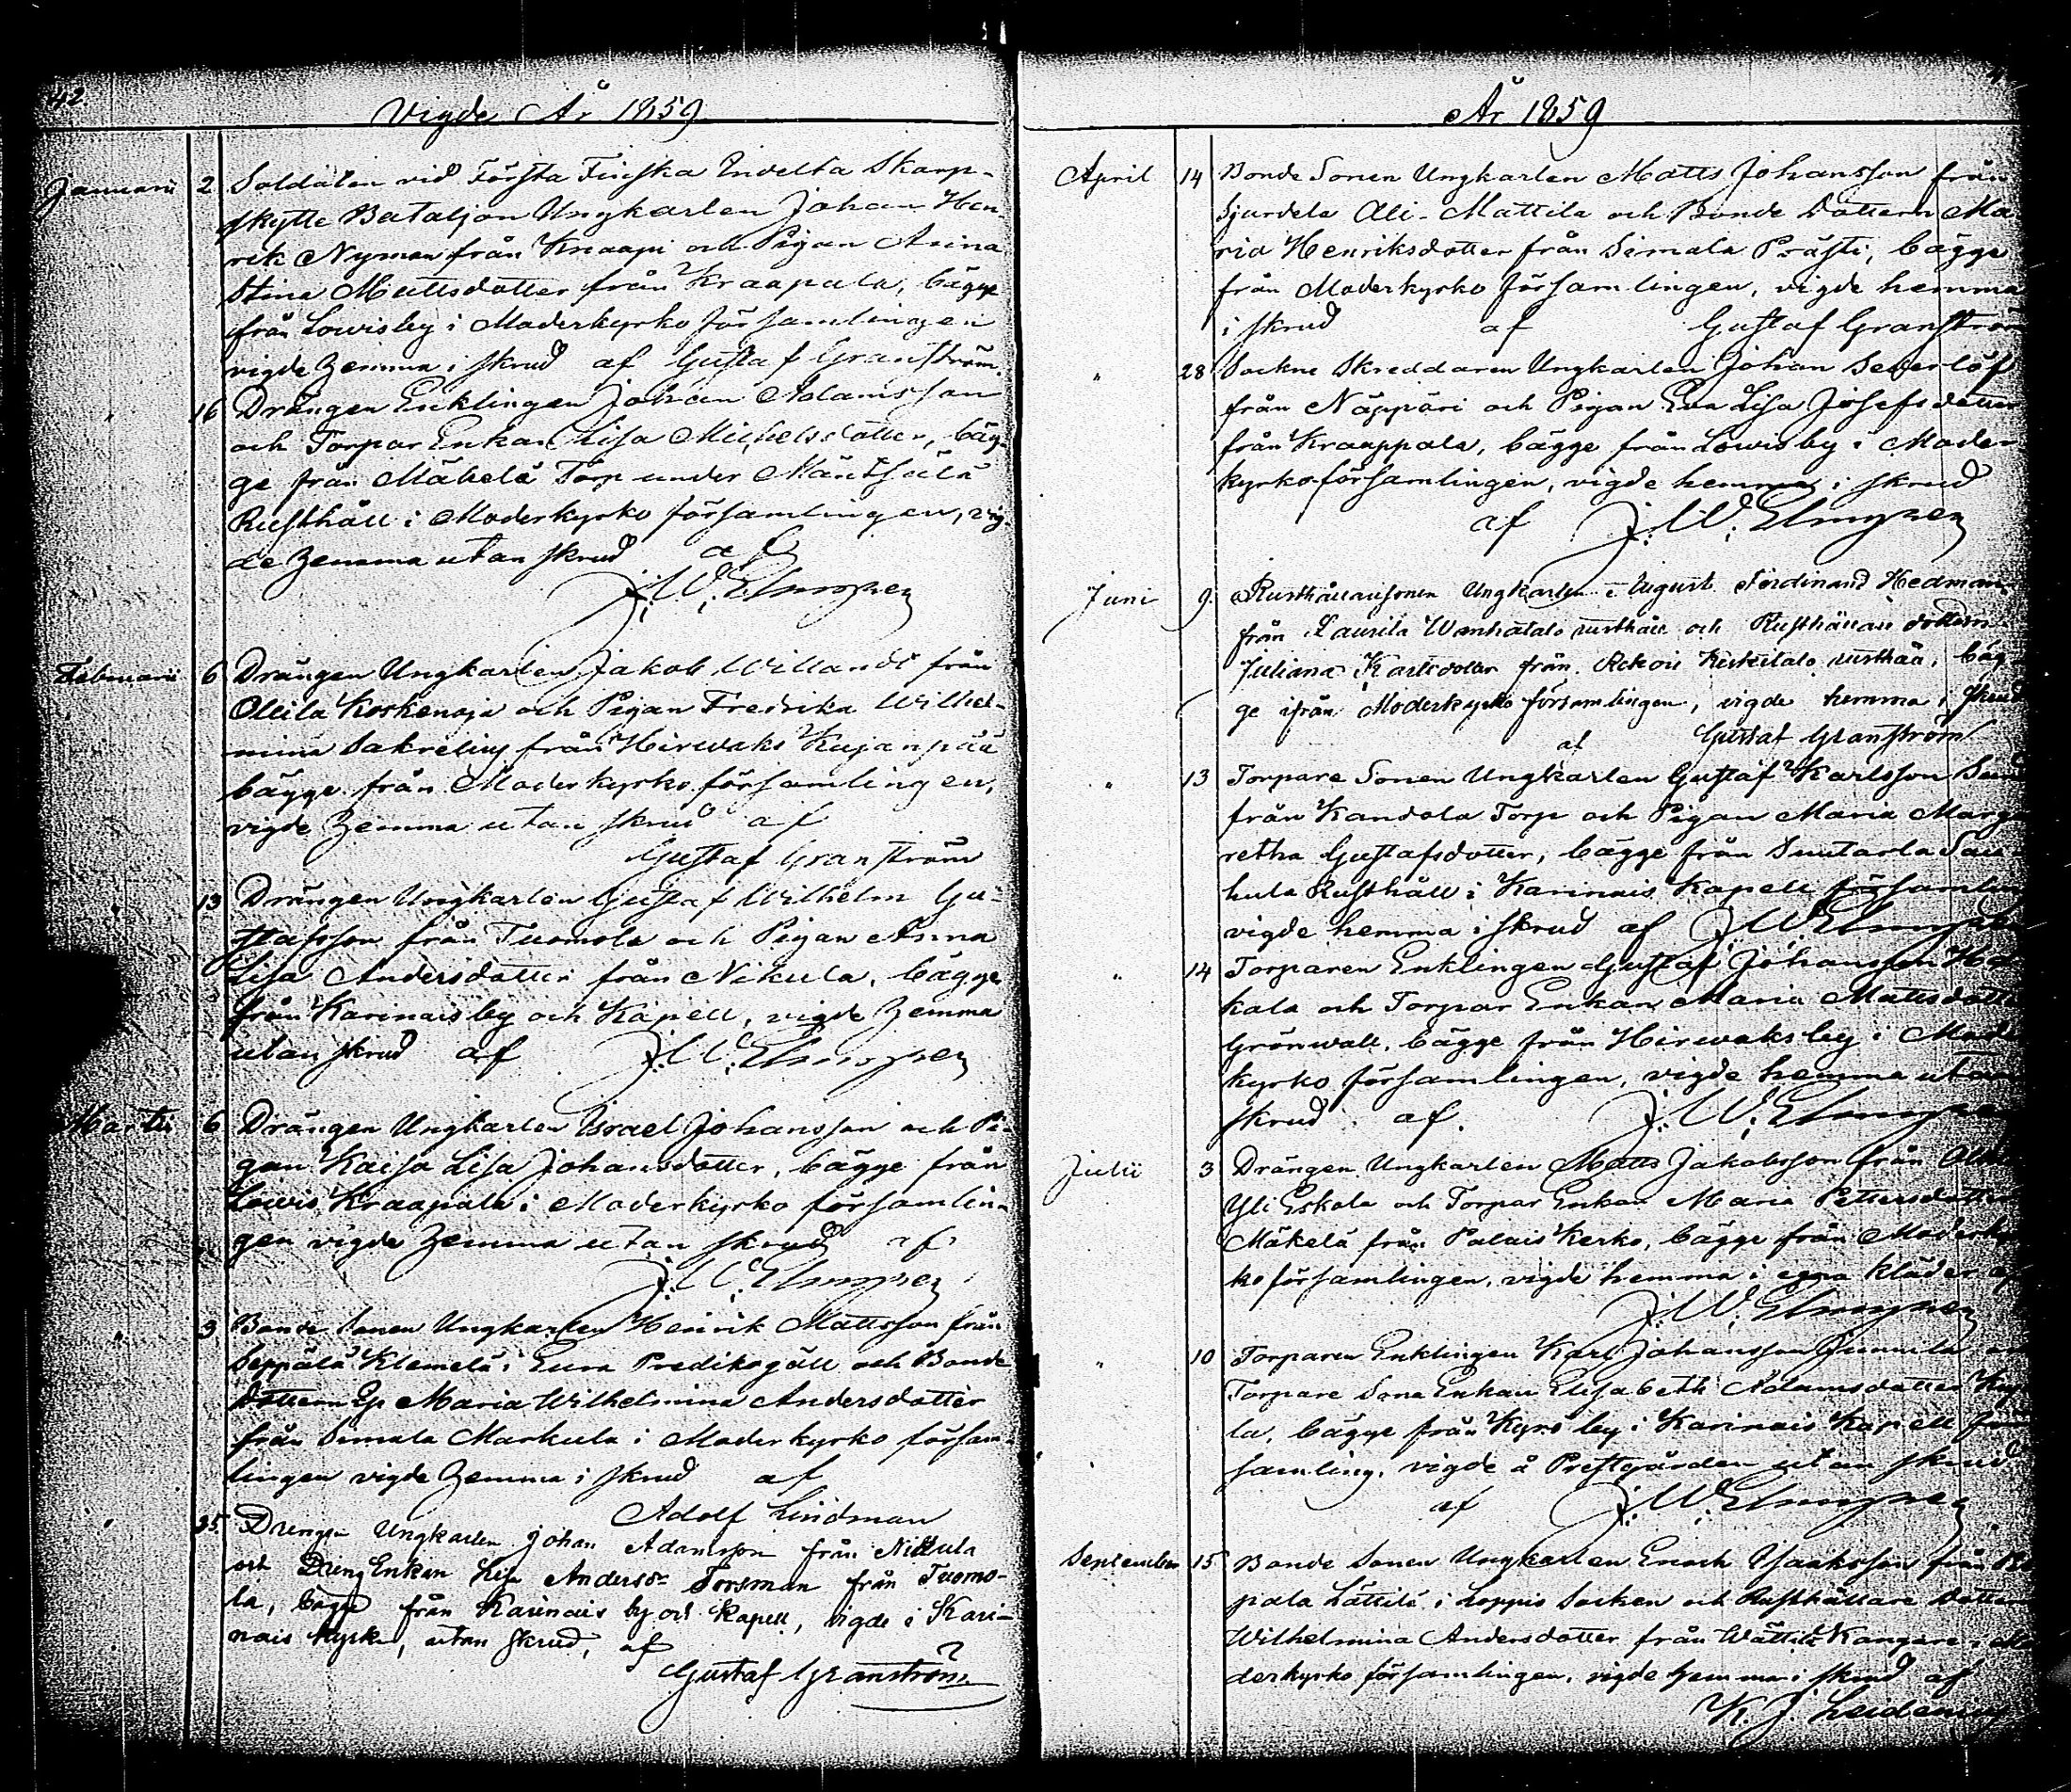 42.
Vigde År 1859
Januarii 2 Soldaten vid Första Finska Indelta Skarp-
skytte Bataljon Ungkarlen Johan Hen-
rik Nyman från Knaapi och Pigan Anna
Stina Mattsdotter från Kraapala, bägge
från Lowisby i Moderkyrko församlingen
vigde hemma i skrud af Gustaf Granström.
" 16 Drängen Enklingen Johan Adamsson
och Torpar Enkan Lisa Michelsdotter, bäg-
ge från Mäkelä Torp under Mäntsälä
Rusthåll i Moderkyrko församlingen, vig-
de hemma utan skrud af
J. W. Elmgren
Februarii 6 Drängen Ungkarlen Jakob Willandt från
Ollila Koskenoja och Pigan Fredrika Wilhel-
mina Sakrelius från Hirwaks Kujanpää
bägge från Moderkyrko församlingen,
vigde hemma utan skrud af
Gustaf Granström
" 13 Drängen Ungkarlen Gustaf Wilhelm Gu-
stafsson från Tuomola och Pigan Anna
Lisa Andersdotter från Nikula, bägge
från Karinaisby och Kapell, vigde hemma
utan skrud af J. W. Elmgren
Martii 6 Drängen Ungkarlen Israel Johansson och Pi-
gan Kaisa Lisa Johansdotter, bägge från
Lowis Kraapala i Moderkyrko församlin-
gen vigde hemma utan skrud af
J. W. Elmgren
" 3 Bonde Sonen Ungkarlen Henrik Mattsson från
Seppälä Klemelä i Eura Predikogäll och Bonde
Dottern Maria Wilhelmina Andersdotter
från Simala Markula i Moderkyrko försam-
lingen vigde hemma i skrud af
Adolf Lindman
" 25. Drengen Ungkarlen Johan Adamsson från Nikkula
och Dreng Enkan Lisa Andersdr Forsman från Tuomo-
la, bägge från Karinais by och Kapell, vigde i Kari-
nais kyrka, utan skrud, af
Gustaf Granström
År 1859
April 14 Bonde Sonen Ungkarlen Matts Johansson från
Sjurdela Ali-Mattila och Bonde Dottern Ma
ria Henriksdotter från Simala Prästi, bägge
från Moderkyrko församlingen, vigde hemma
i skrud af Gustaf Granström
" 28 Sockne Skreddaren Ungkarlen Johan Sederlöf
från Näppäri och Pigan Eva Lisa Josefsdotter
från Kraappala, bägge från Lowisby i Moder
kyrkoförsamlingen, vigde hemma i skrud
af J. W. Elmgren
Juni 9. Rusthållaresonen Ungkarlen August Ferdinand Hedman,
från Laurila Wanhatalo rusthåll och Rusthållare dottern
Juliana Karlsdotter från Rekois Keskitalo rusthåll, bäg-
ge ifrån Moderkyrko församlingen, vigde hemma i skrud
af Gustaf Granström
" 13 Torpare Sonen Ungkarlen Gustaf Karlsson
från Kandola Torp och Pigan Maria Marga
retha Gustafsdotter, bägge från Suutarla Sau
hula Rusthåll i Karinais Kapell församlin
vigde hemma i skrud af J. W. Elmgren
" 14 Torparen Enklingen Gustaf Johansson
kala och Torpar Enkan Maria Mattsdotter
Grönwall, bägge från Hirwaksby i Moder
kyrko församlingen, vigde hemma utan
skrud af. J. W. Elmgren
Julii 3 Drängen Ungkarlen Matts Jakobsson från
Yli Eskola och Torpar Enkan Maria Pettersdotter
Mäkelä från Palais Kerko, bägge från Moderkyr
ko församlingen, vigde hemma i egna kläder af
J. W. Elmgren
" 10 Torparen Enklingen Karl Johansson Junnila
Torpare Sona Enkan Elisabeth Adamsdotter
la, bägge från Kyrö by i Karinais Kapell för
samling, vigde å Prestgården utan skrud
af J. W. Elmgren
September 15 Bonde Sonen Ungkarlen Enoch Isaaksson från
pala Lättilä i Loppis Socken och Rusthållare Dotter
Wilhelmina Andersdotter från Wättilä Kangare i Mo
derkyrko församlingen, vigde hemma i skrud af
K. J.